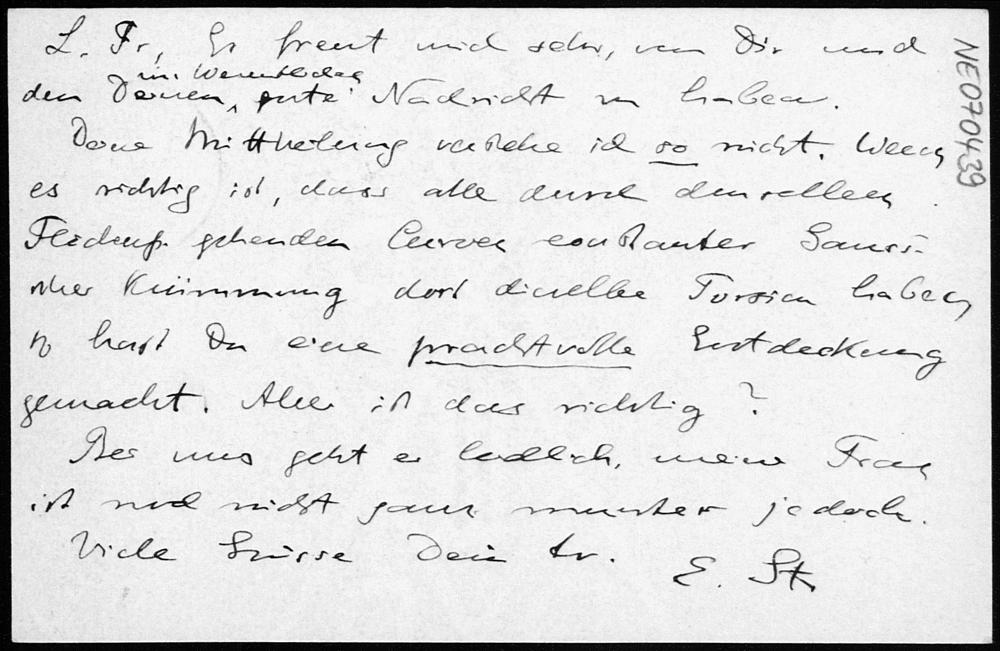 L. Fr, Es freut mich sehr, von Dir und
im Wesentlichen
den Deinen, gute Nachricht zu haben.
Deine Mittheilung verstehe ich so nicht. Wenn
es richtig ist, dass alle durch denselben
Flächenp. gehenden Curven constanter Gauss'-
scher Krümmung dort dieselbe Torsion haben,
so hast Du eine prachtvolle Entdeckung
gemacht. Aber ist das richtig?
Bei uns geht es leidlich, meine Frau
ist noch nicht ganz munter jedoch.
Viele Grüsse Dein tr.
E. St.
NE070439